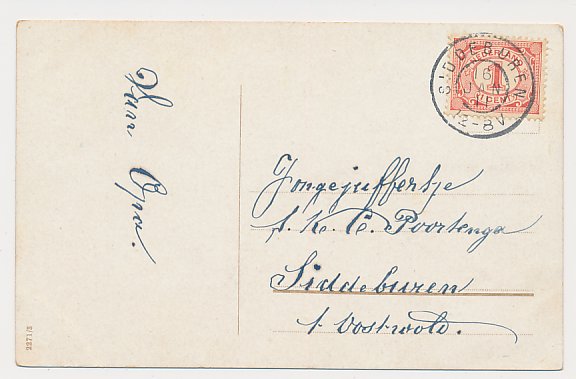 Van Opa.
Jongejuffertje
S. K. E. Poortenga
Siddeburen
t. Oostwold.
SIDDEBUREN
NEDERLAND
1
2271/3